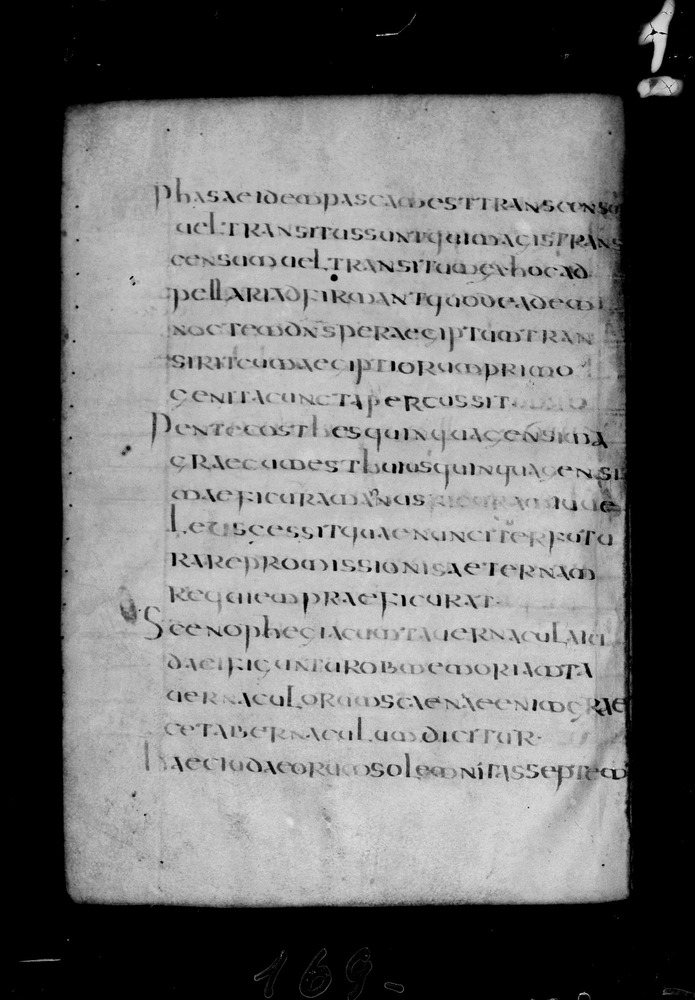 phasaeidempascamesttranscensu
ueltransitussuntquimagistrans
censumueltransitumexhocad
pellariadfirmantquodeademi
noctemdnsperaegiptumtran
siritcumaegiptiorumprimo
genitacunctapercussit
pentecosthesquinquagensima
graecumesthuiusquinquagensi
maefiguramannus
leuscessitquaenunciterfutu
rarepromissionisaeternam
requiempraefigurat·
scenophegiacumtauernaculari
daeificunturobmemoriamta
uernaculorumscaenaeenimgrae
cetabernaculumdicitur·
haeciudaeorumsolemnitasseptem
169-
1